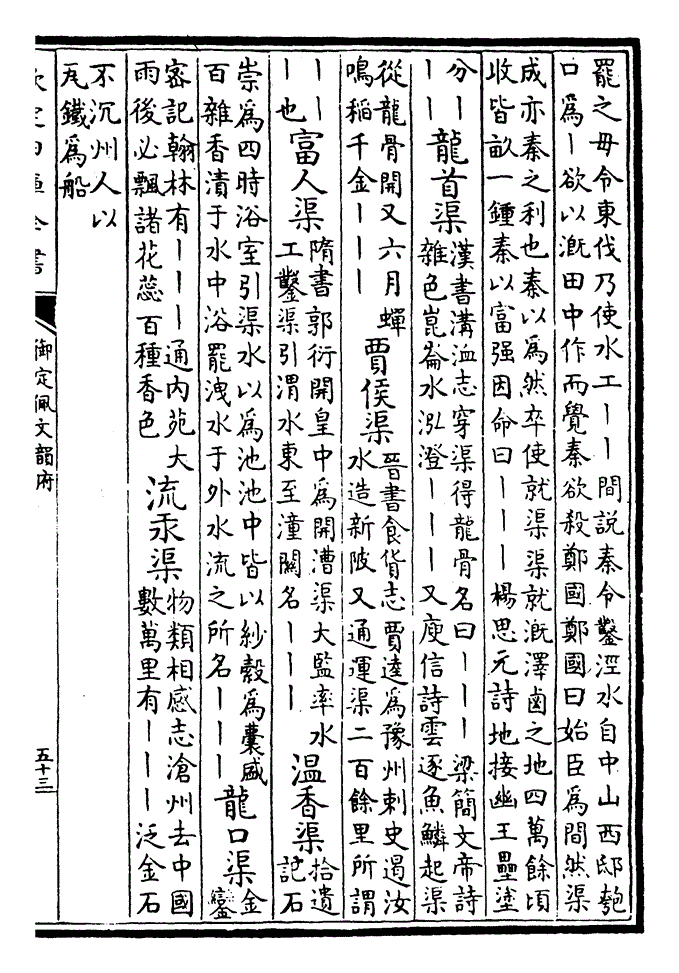 罷之毋令東伐乃使水工丨丨間說秦令鑿涇水自中山西邸瓠
口爲丨欲以溉田中作而覺秦欲殺鄭國鄭國曰始臣爲間然渠
成亦秦之利也秦以爲然卒使就渠渠就溉澤鹵之地四萬餘頃
收皆畝一鍾秦以富强因命曰丨丨丨楊思元詩地接幽王壘塗
分丨
丨丨
龍首渠
漢書溝洫志穿渠得龍骨名曰丨丨丨梁簡文帝詩
雜色崑崙水泓澄丨丨丨又庾信詩雲逐魚鱗起渠
從龍骨開又六月蟬
鳴稻千金丨丨丨
賈侯渠
晉書食貨志賈逵爲豫州刺史遏汝
水造新陂又通運渠二百餘里所謂
丨丨
丨也
富人渠
隋書郭衍開皇中爲開漕渠大監率水
工鑿渠引渭水東至潼關名丨丨丨
溫香渠
拾遺
記石
崇爲四時浴室引渠水以爲池池中皆以紗縠爲囊盛
百雜香漬于水中浴罷洩水于外水流之所名丨丨丨
龍口渠
金
鑾
密記翰林有丨丨丨通內苑大
雨後必飄諸花蕊百種香色
流汞渠
物類相感志滄州去中國
數萬里有丨丨丨泛金石
不沉州人以
瓦鐵爲船
欽定四庫全書
御定佩文韻府
五十三